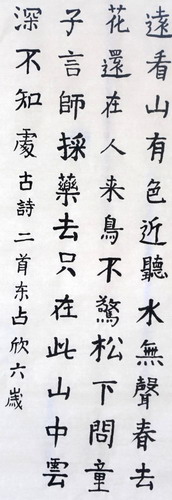 遠看山有色近聽水無聲春去
花還在人来鳥不驚松下問童
子言師採藥去只在此山中雲
深不知處古詩二首东占欣六歲